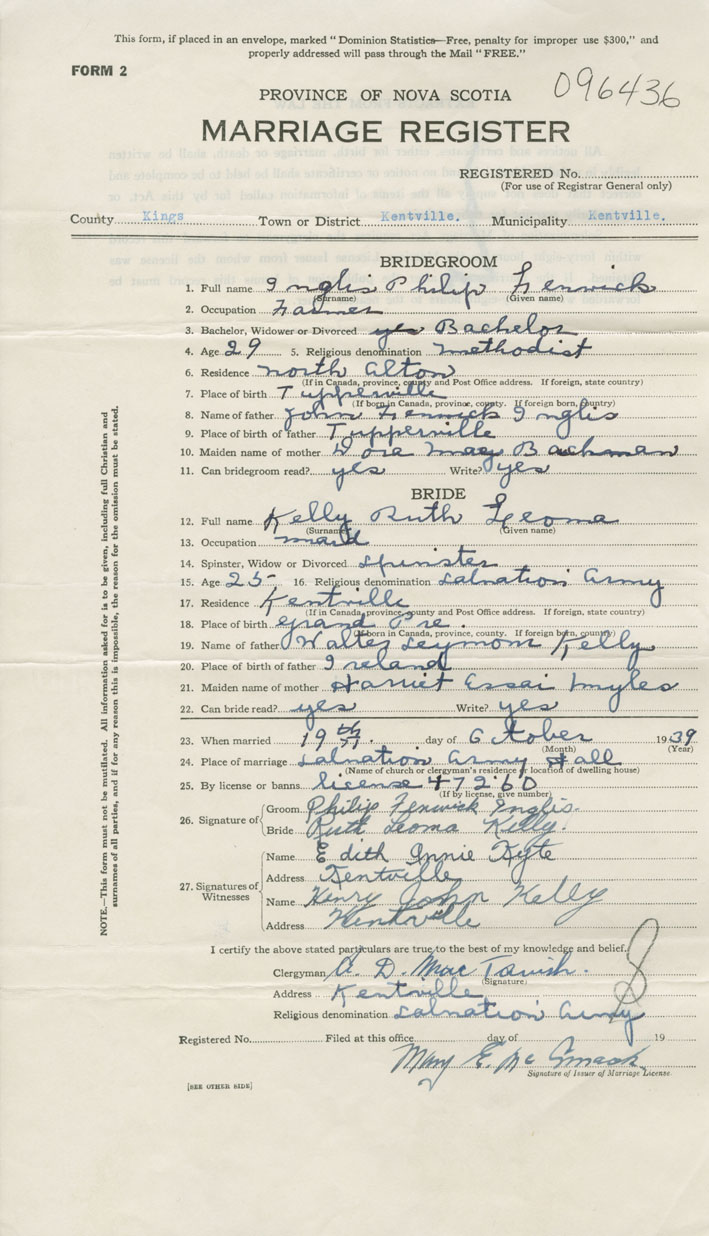 This form, if placed in an envelope, marked "Dominion Statistics—Free, penalty for improper use $300," and
properly addressed will pass through the Mail "FREE."
FORM 2
096436
PROVINCE OF NOVA SCOTIA
MARRIAGE REGISTER
REGISTERED No.
(For use of Registrar General only)
County Kings Town or District Kentville. Municipality Kentville.
BRIDEGROOM
1. Full name Inglis Philip Fenwick
(Surname) (Given name)
2. Occupation Farmer
3. Bachelor, Widower or Divorced yes Bachelor
4. Age 29 5. Religious denomination methodist
6. Residence north Alton
(If in Canada, province, county and Post Office address. If foreign, state country)
7. Place of birth Tupperville
(If born in Canada, province, county. If foreign born, country)
8. Name of father John Fenwick Inglis
9. Place of birth of father Tupperville
10. Maiden name of mother Dora May Bachman
11. Can bridegroom read? yes Write? yes
BRIDE
12. Full name Kelly Ruth Leoma
(Surname) (Given name)
13. Occupation maid
14. Spinster, Widow or Divorced spinster
15. Age 25 16. Religious denomination Salvation Army
17. Residence Kentville
(If in Canada, province, county and Post Office address. If foreign, state country)
18. Place of birth grand Pre.
(If born in Canada, province, county. If foreign born, country)
19. Name of father Walter Seymore Kelly
20. Place of birth of father Ireland
21. Maiden name of mother Harriet Essai Smyles
22. Can bride read? yes Write? yes
23. When married 19th day of October 1939
(Month) (Year)
24. Place of marriage Salvation Army Hall
(Name of church or clergyman's residence or location of dwelling house)
25. By license or banns license 47260
(If by license, give number)
26. Signature of
Groom Philip Fenwick Inglis.
Bride Ruth Leoma Kelly.
27. Signatures of Witnesses
Name Edith Annie Kyte
Address Kentville
Name Henry John Kelly
Address Kentville
I certify the above stated particulars are true to the best of my knowledge and belief.
Clergyman A. D. MacTavish.
(Signature)
Address Kentville
Religious denomination Salvation Army
Registered No. Filed at this office day of 19
Mary E.
Signature of Issuer of Marriage License.
[SEE OTHER SIDE]
NOTE.—This form must not be mutilated. All information asked for is to be given, including full Christian and
surnames of all parties, and if for any reason this is impossible, the reason for the omission must be stated.